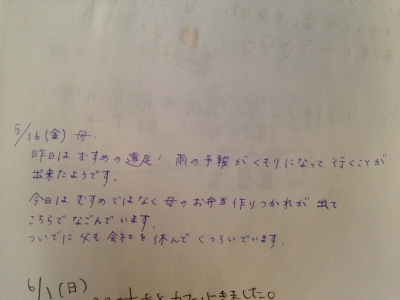 5/16(金) 母
昨日は むすめの 遠足! 雨の予報が くもりになって 行くことが
出来たようです。
今日は むすめではなく 母の お弁当 作り つかれが 出て
こちらで なごんでいます。
ついでに 父も 会社を 休んで くつろいでいます。
6/1(日)